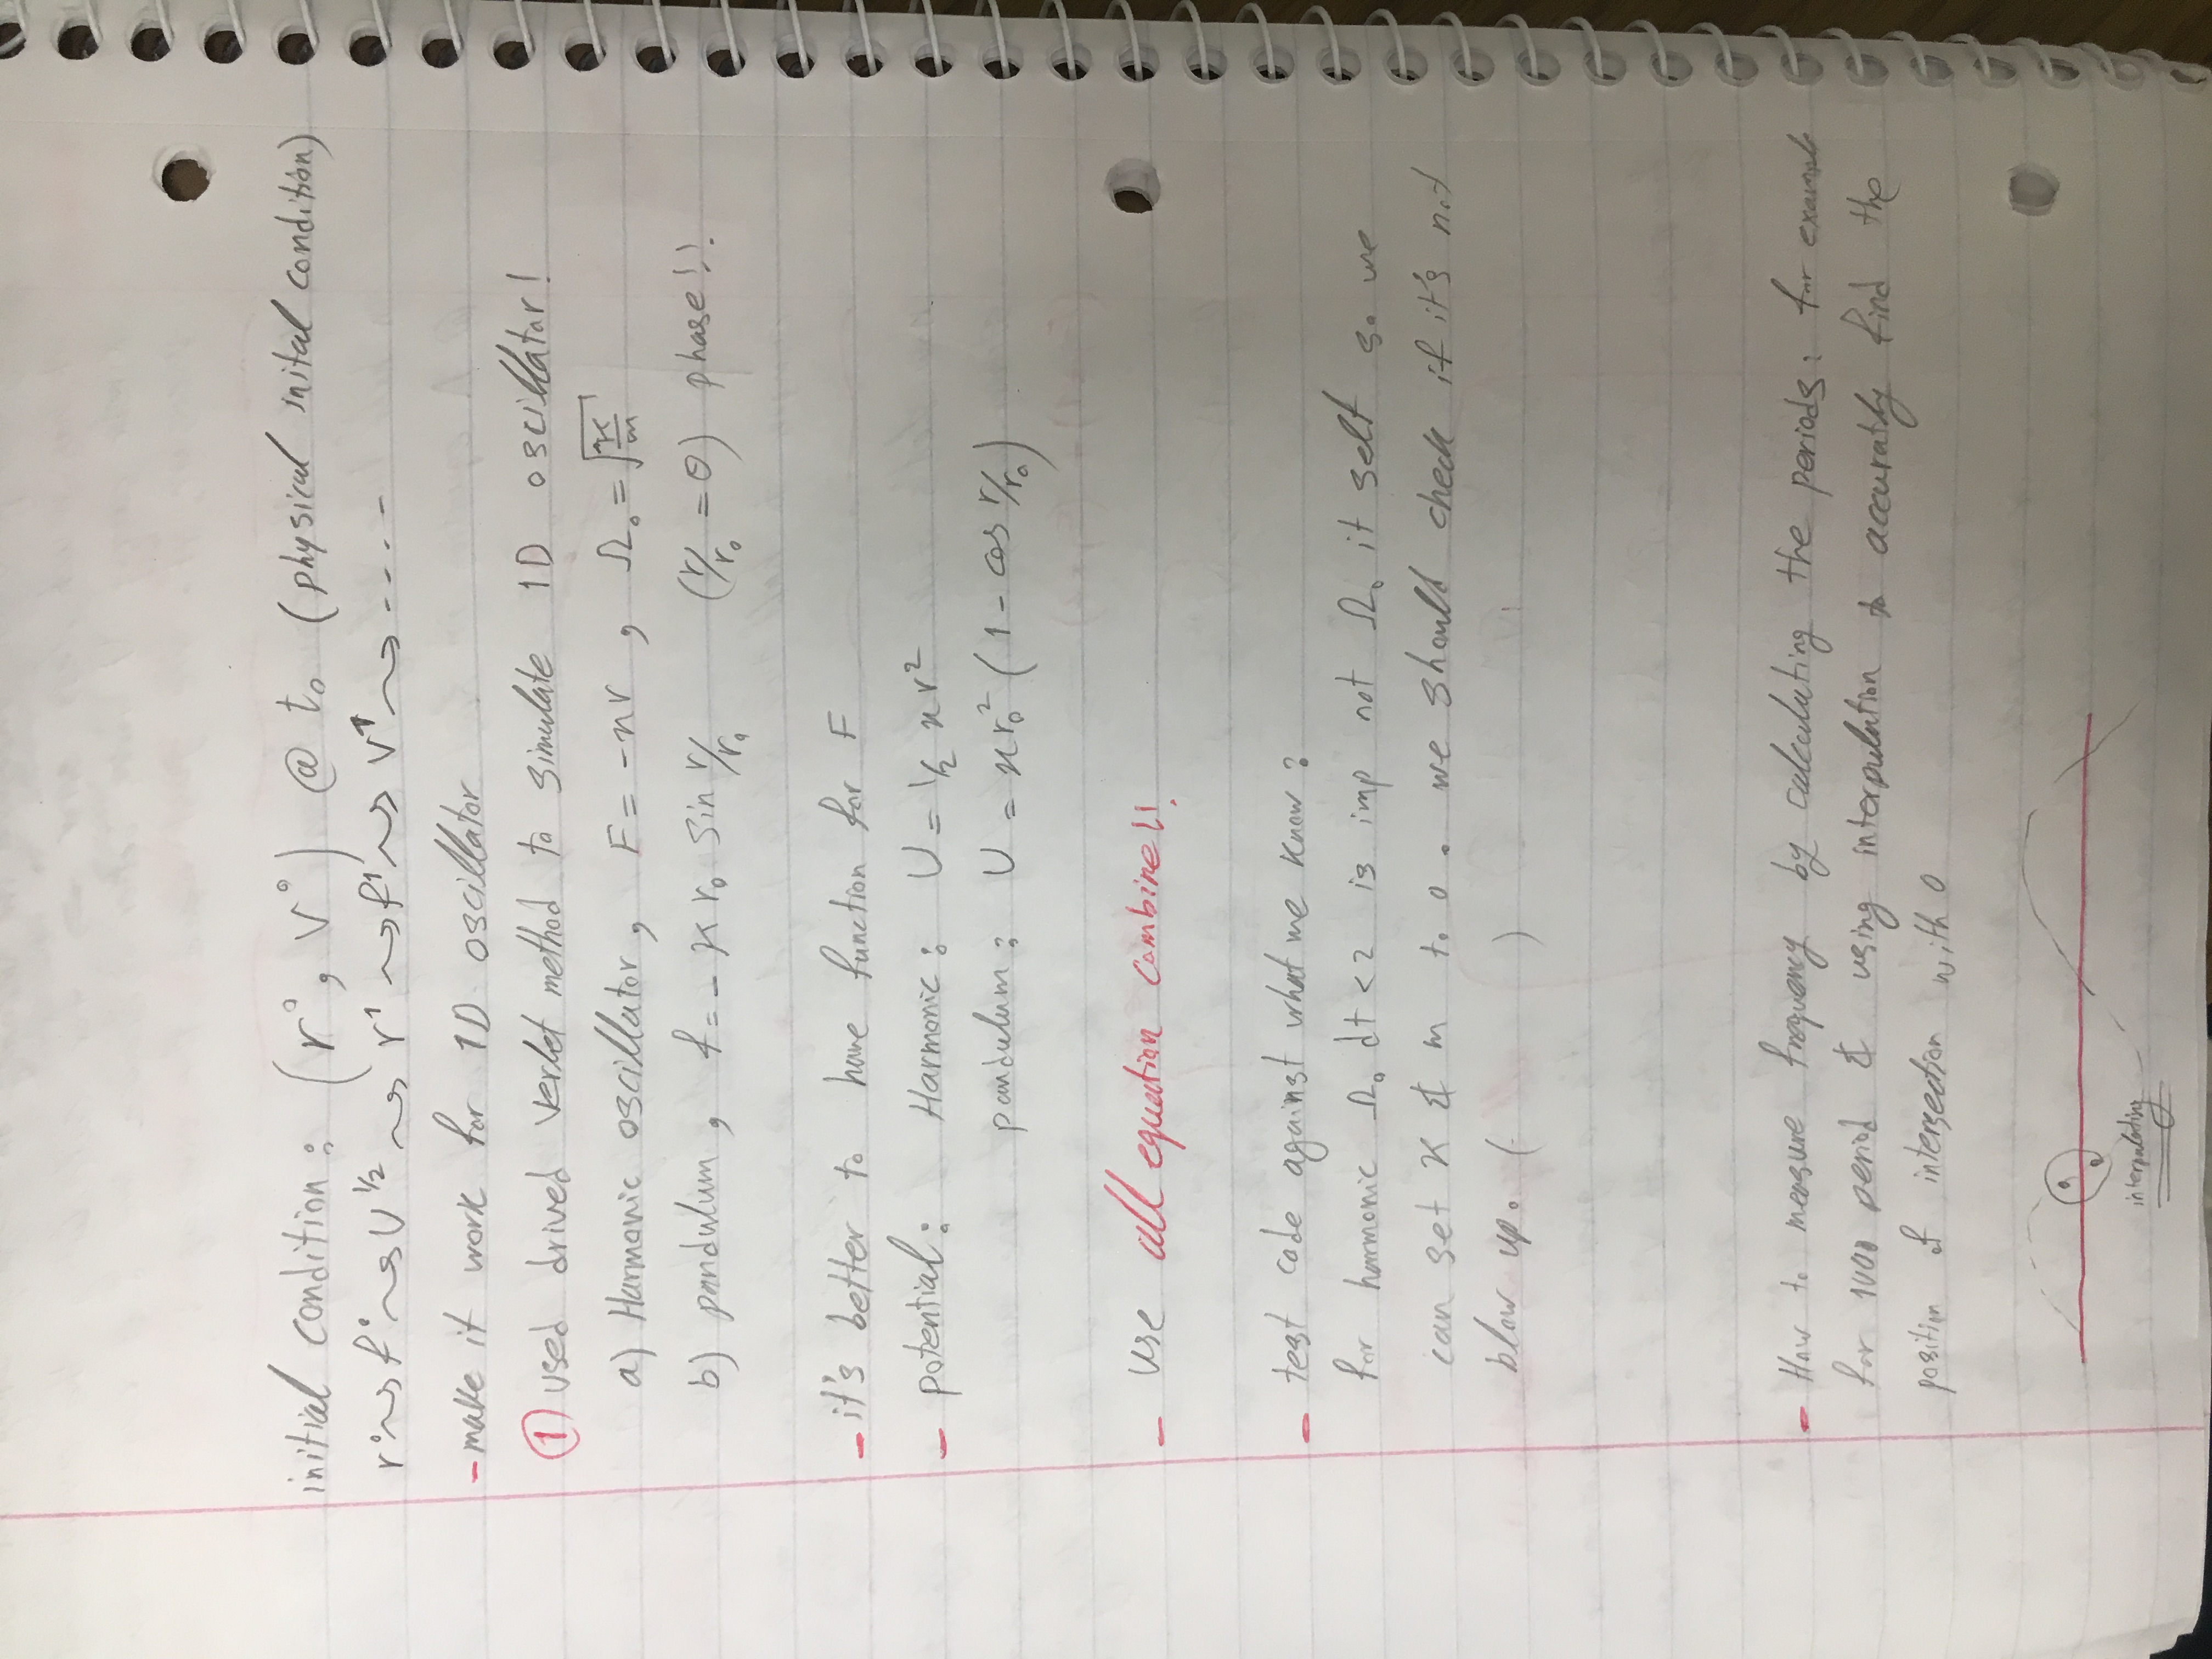 initial condition : (r°, v°) @ t₀ (physical inital condition)
r° ⇝ f° ⇝ U^1/2 ⇝ r¹ ⇝ f¹ ⇝ v¹ ⇝ ....
- make it work for 1D oscillator
① used drived verlet method to simulate 1D oscillator!
a) Harmonic oscillator, F = -κr , Ω₀ = √(κ/m)
b) pandulum, f = - κ r₀ sin r/r₀ (r/r₀ = θ) phase!!
- it's better to have function for F
- potential : Harmonic : U = 1/2 κ r²
pandulum : U = κr₀² (1 - cos r/r₀)
- use all equation combine!!
- test code against what me know :
for harmonic Ω₀ dt < 2 is imp not Ω₀ it self so we
can set κ & m to 0 . we should check if it's not
blow up. ( )
- How to measure frequency by calculating the periods : for example
for 1000 period & using interpulation to accuratly find the
position of intersection with 0
interpulating